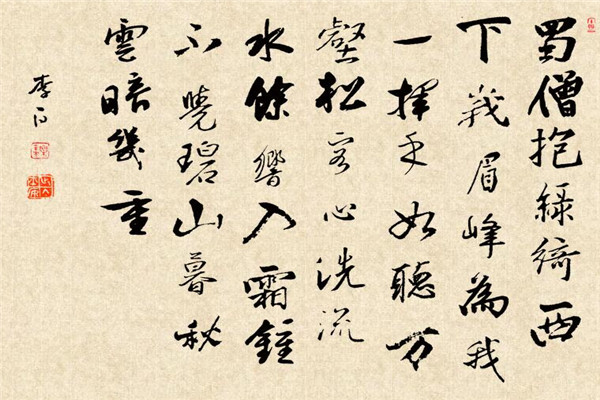 蜀僧抱綠綺西
下峩眉峰為我
一揮手如聽万
壑松客心洗流
水餘響入霜鍾
不覺碧山暮秋
雲暗幾重
李白